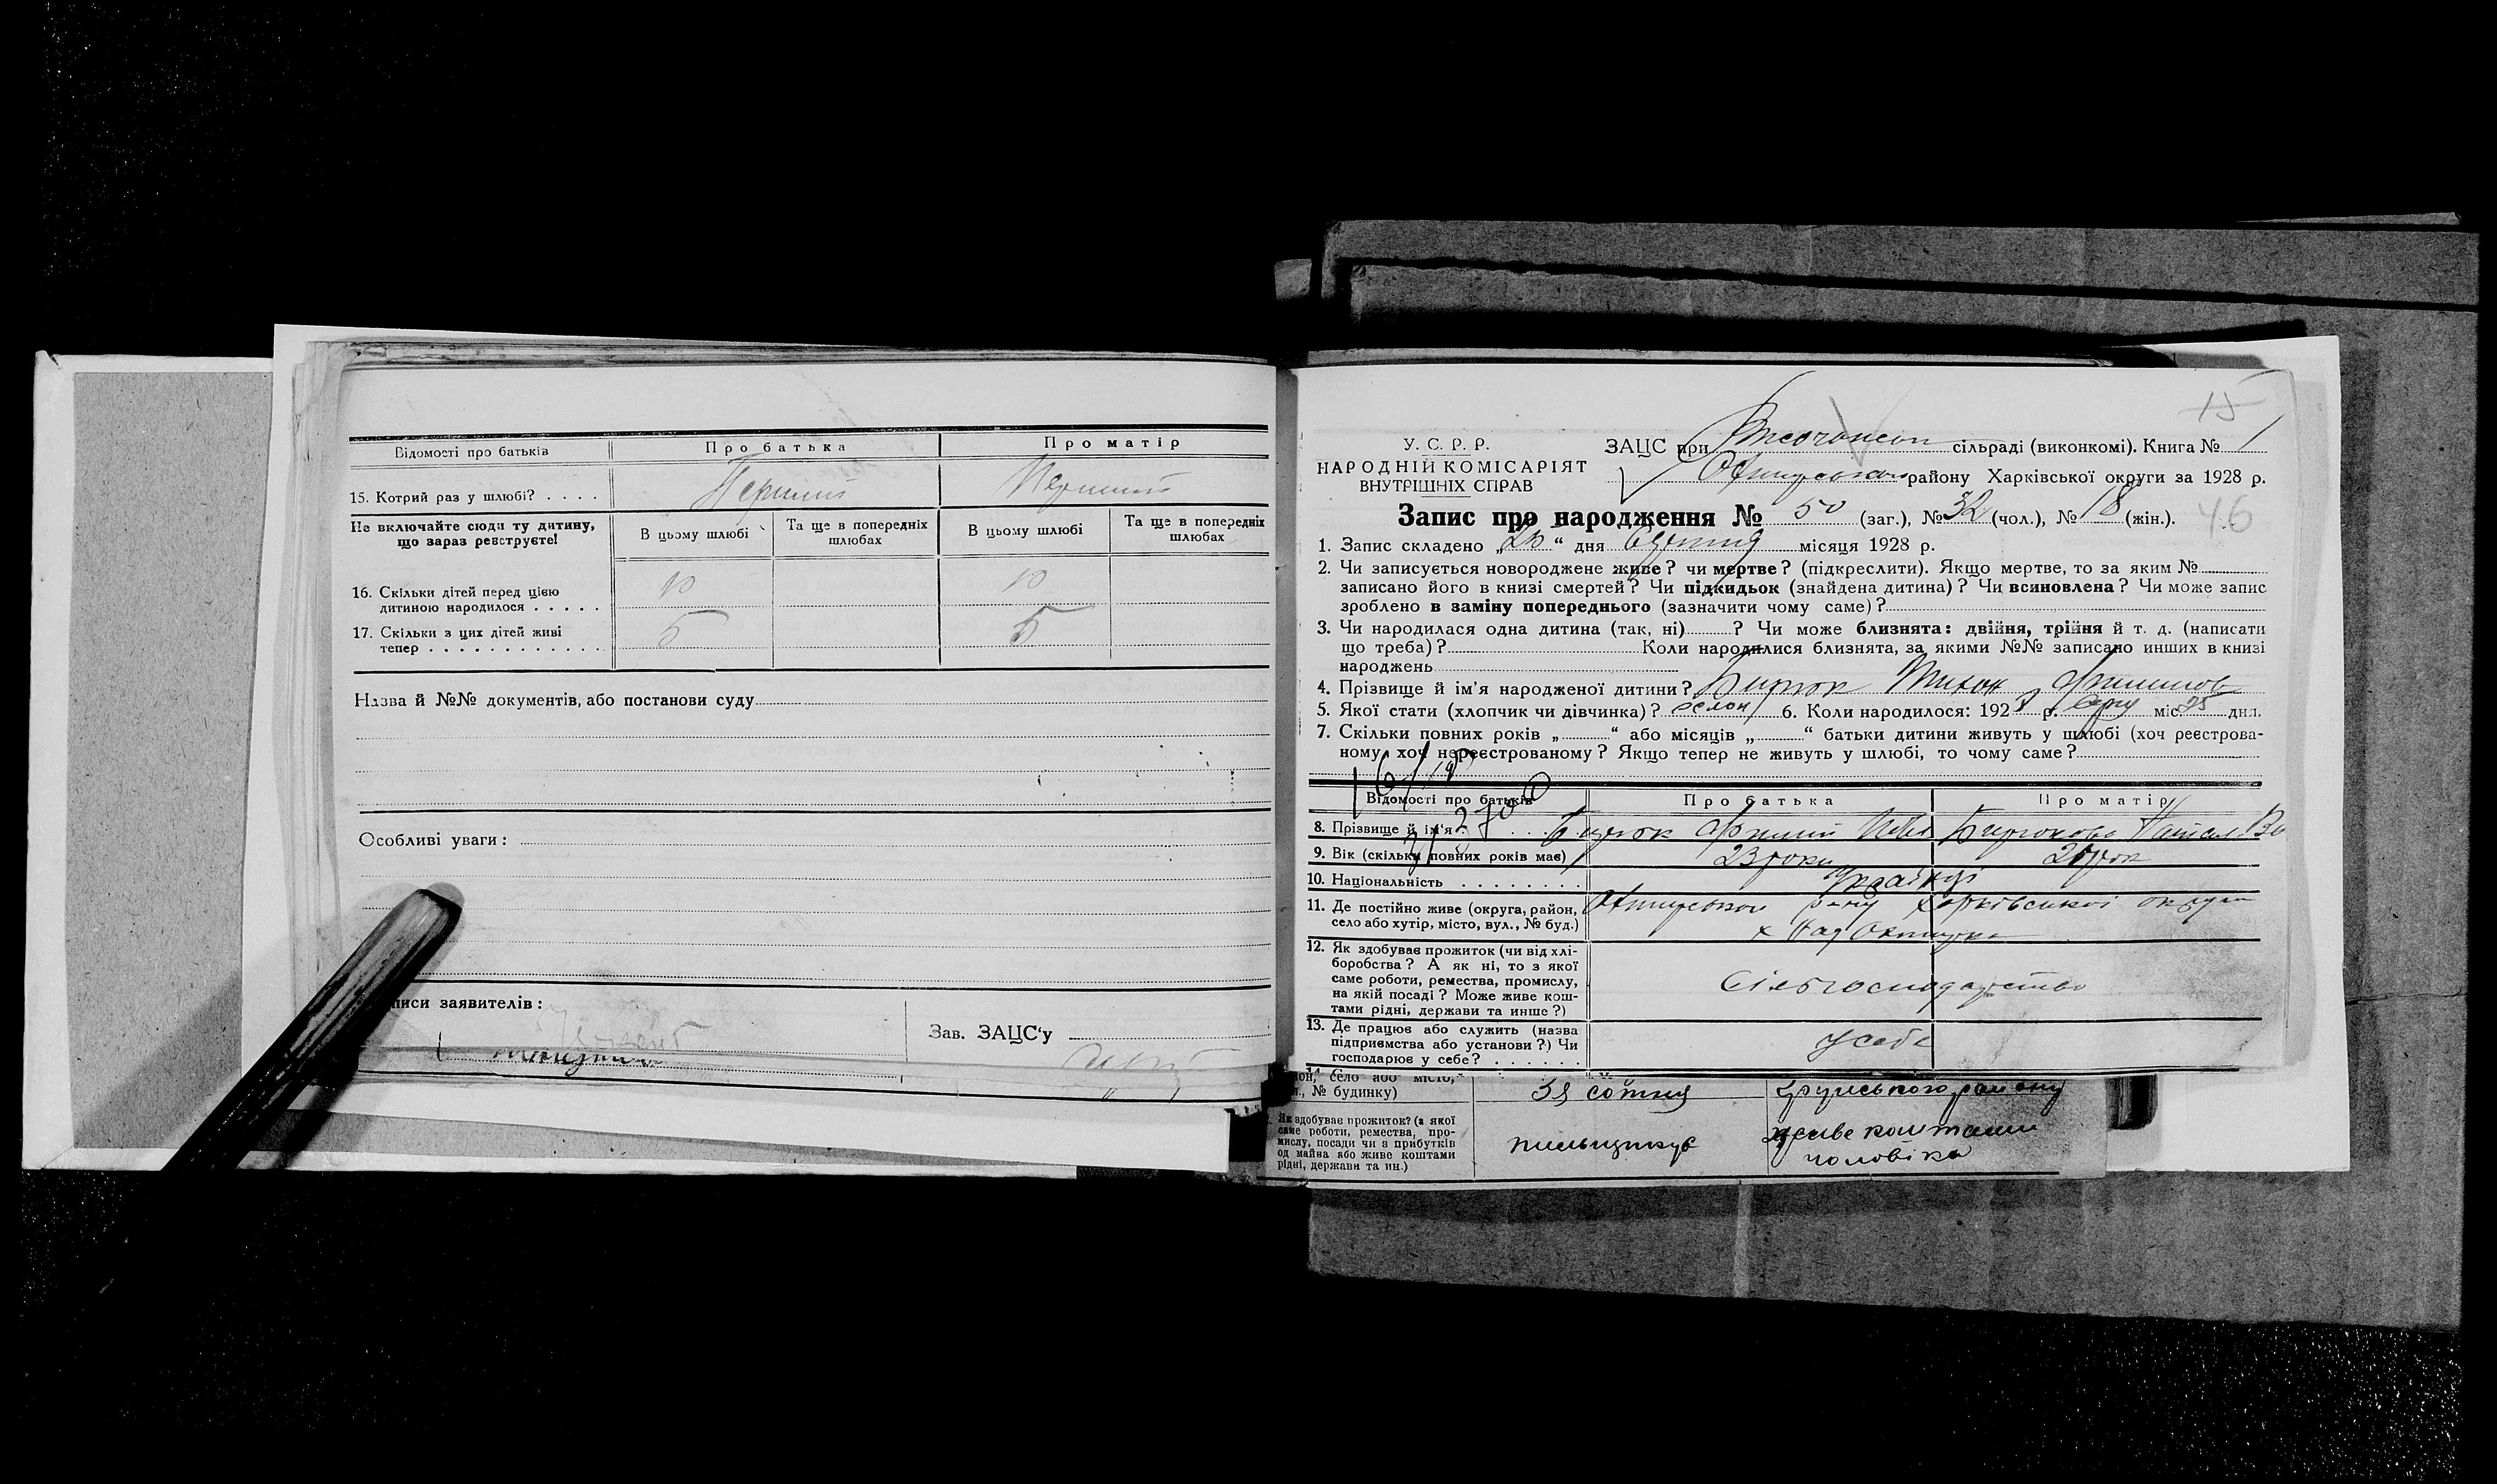 Відомості про батьків
Про батька
Про матір
15. Котрий раз у шлюбі? . . . .
Перший
Перший
Не включайте сюди ту дитину,
що зараз реєструєте!
В цьому шлюбі
Та ще в попередніх
шлюбах
В цьому шлюбі
Та ще в попередніх
шлюбах
16. Скільки дітей перед цією
дитиною народилося . . . . .
10
10
17. Скільки з цих дітей живі
тепер . . . . . . . . . . . . .
5
5
Назва й №№ документів, або постанови суду
Особливі уваги:
писи заявителів:
Зав. ЗАЦС'у
15
У. С. Р. Р.
НАРОДНІЙ КОМІСАРІЯТ
ВНУТРІШНІХ СПРАВ
ЗАЦС при сільраді (виконкомі). Книга № 1
району Харківської округи за 1928 р.
Запис про народження № 50 (заг.), № 32 (чол.), № 18 (жін.).
46
1. Запис складено „26“ дня Серпня місяця 1928 р.
2. Чи записується новороджене живе? чи мертве? (підкреслити). Якщо мертве, то за яким №
записано його в книзі смертей? Чи підкидьок (знайдена дитина)? Чи всиновлена? Чи може запис
зроблено в заміну попереднього (зазначити чому саме)?
3. Чи народилася одна дитина (так, ні) ? Чи може близнята: двійня, трійня й т. д. (написати
що треба)? Коли народилися близнята, за якими №№ записано инших в книзі
народжень
4. Прізвище й ім'я народженої дитини? Бирюк Тихон
5. Якої стати (хлопчик чи дівчинка)? 6. Коли народилося: 1928 р. Серп міс. 25 дня.
7. Скільки повних років „ “ або місяців „ “ батьки дитини живуть у шлюбі (хоч реєстрова-
ному, хоч нереєстрованому? Якщо тепер не живуть у шлюбі, то чому саме?
Відомості про батьків
Про батька
Про матір
8. Прізвище й ім'я . . . . .
Бирюк
Бирюкова
9. Вік (скільки повних років має)
23 роки
10. Національність . . . . . . . .
Українці
11. Де постійно живе (округа, район,
село або хутір, місто, вул., № буд.)
Харківської округи
12. Як здобуває прожиток (чи від хлі-
боробства? А як ні, то з якої
саме роботи, ремества, промислу,
на якій посаді? Може живе кош-
тами рідні, держави та инше?)
Сільгосподарство
13. Де працює або служить (назва
підприємства або установи?) Чи
господарює у себе? . . . . . .
У себе
село або місто,
№ будинку)
3я сотня
району
Як здобуває прожиток? (з якої
саме роботи, ремества, про-
мислу, посади чи з прибутків
од майна або живе коштами
рідні, держави та ин.)
живе коштами
чоловіка